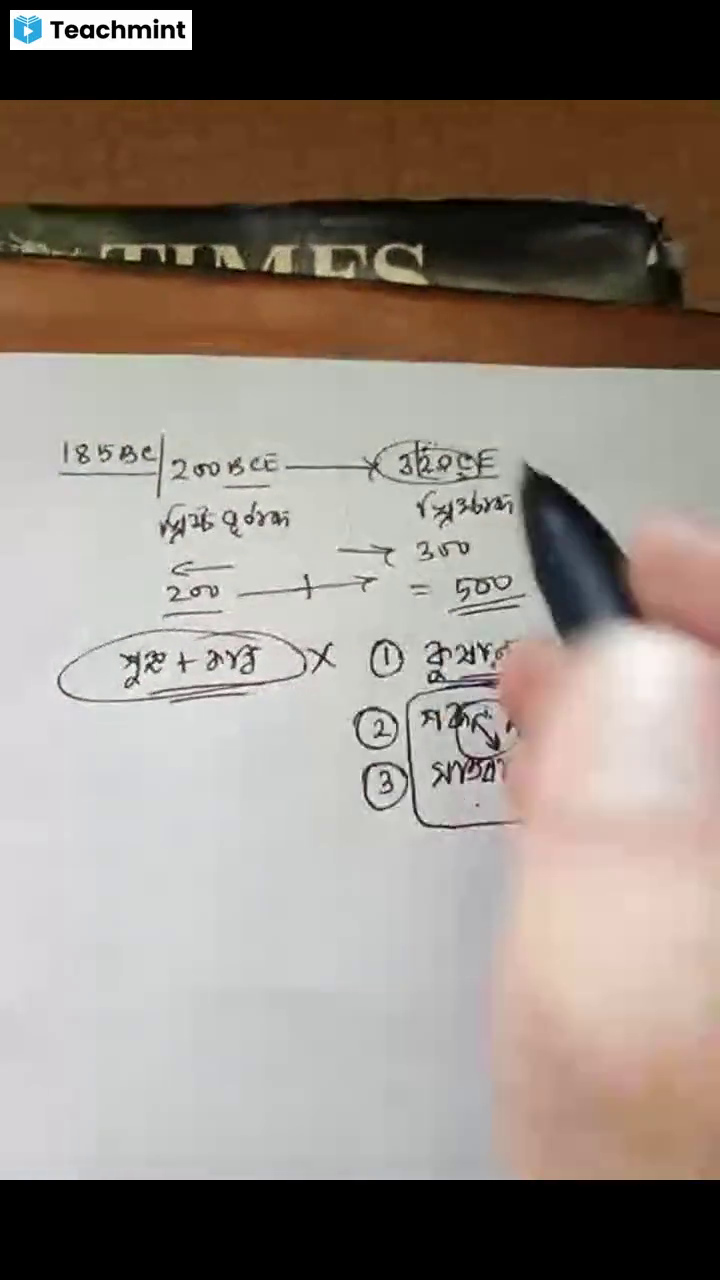 Teachmint
TIMES
185BC/200BCE → 320CE
খ্রিষ্ট পূর্বাব্দ খ্রিষ্টাব্দ
→ 300
200 → = 500
শুঙ্গ + কান্ব X ① কুষাণ
②
③ সাতবা